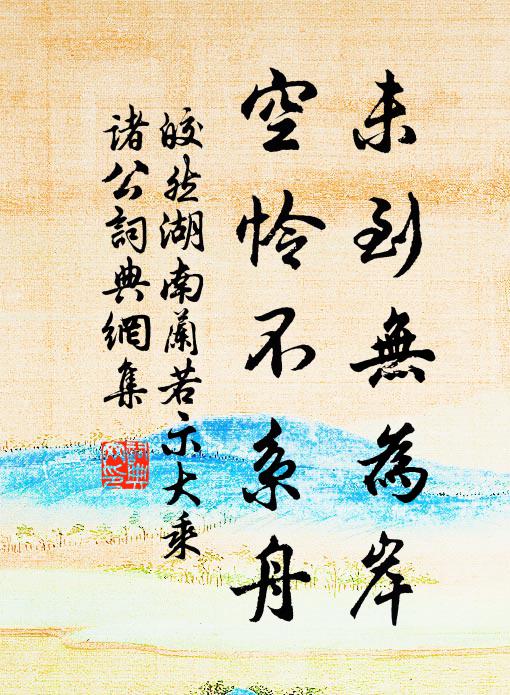 未到無為岸
空怜不系舟
皎然湖南蘭若示大乘
諸公詞典網集